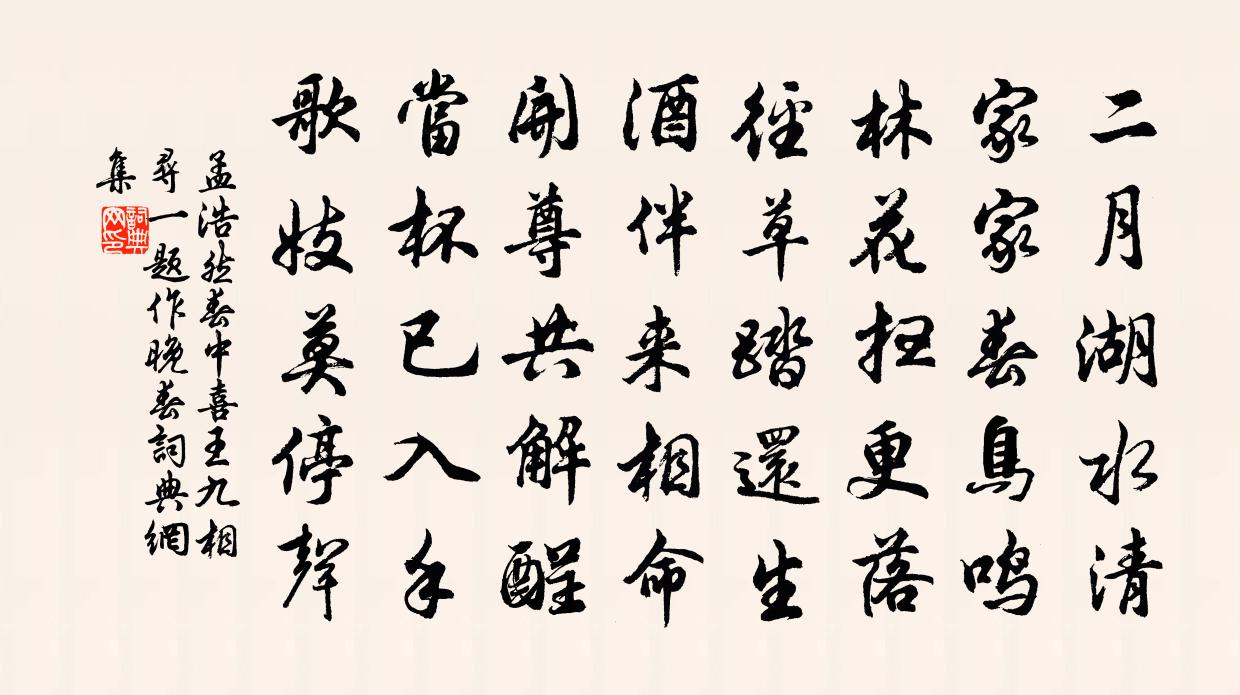 二月湖水清
家家春鳥鳴
林花扫更落
徑草踏還生
酒伴来相命
開尊共解酲
當杯已入手
歌妓莫停聲
孟浩然春中喜王九相
尋一题作晚春詞典網
集
詞典
网印